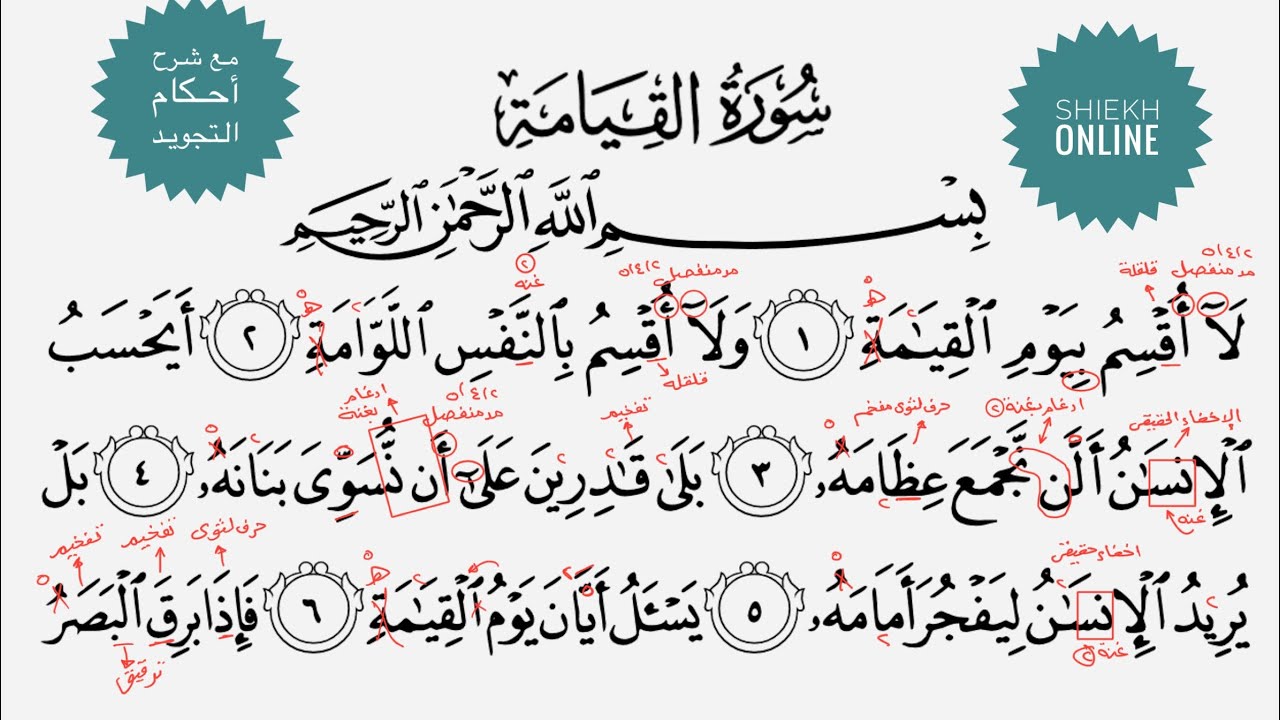 مع شرح
أحكام
التجويد
SHIEKH
ONLINE
سُورَةُ القِيَامَةِ
بِسْمِ ٱللَّهِ ٱلرَّحْمَٰنِ ٱلرَّحِيمِ
مد منفصل ٥/٤/٢
قلقلة
مد منفصل ٥/٤/٢
غنه ٢
لَآ أُقْسِمُ بِيَوْمِ ٱلْقِيَٰمَةِ ١ وَلَآ أُقْسِمُ بِٱلنَّفْسِ ٱللَّوَّامَةِ ٢ أَيَحْسَبُ
قلقله
الإخفاء الحقيقي
ادغام بغنة ٢
حرف لثوي مفخم
تفخيم
مد منفصل ٥/٤/٢
ادغام بغنة
ٱلْإِنسَٰنُ أَلَّن نَّجْمَعَ عِظَامَهُۥ ٣ بَلَىٰ قَٰدِرِينَ عَلَىٰٓ أَن نُّسَوِّىَ بَنَانَهُۥ ٤ بَلْ
غنه
اخفاء حقيقي
حرف لثوي
تفخيم
تفخيم
يُرِيدُ ٱلْإِنسَٰنُ لِيَفْجُرَ أَمَامَهُۥ ٥ يَسْـَٔلُ أَيَّانَ يَوْمُ ٱلْقِيَٰمَةِ ٦ فَإِذَا بَرِقَ ٱلْبَصَرُ
غنة
ترقيق